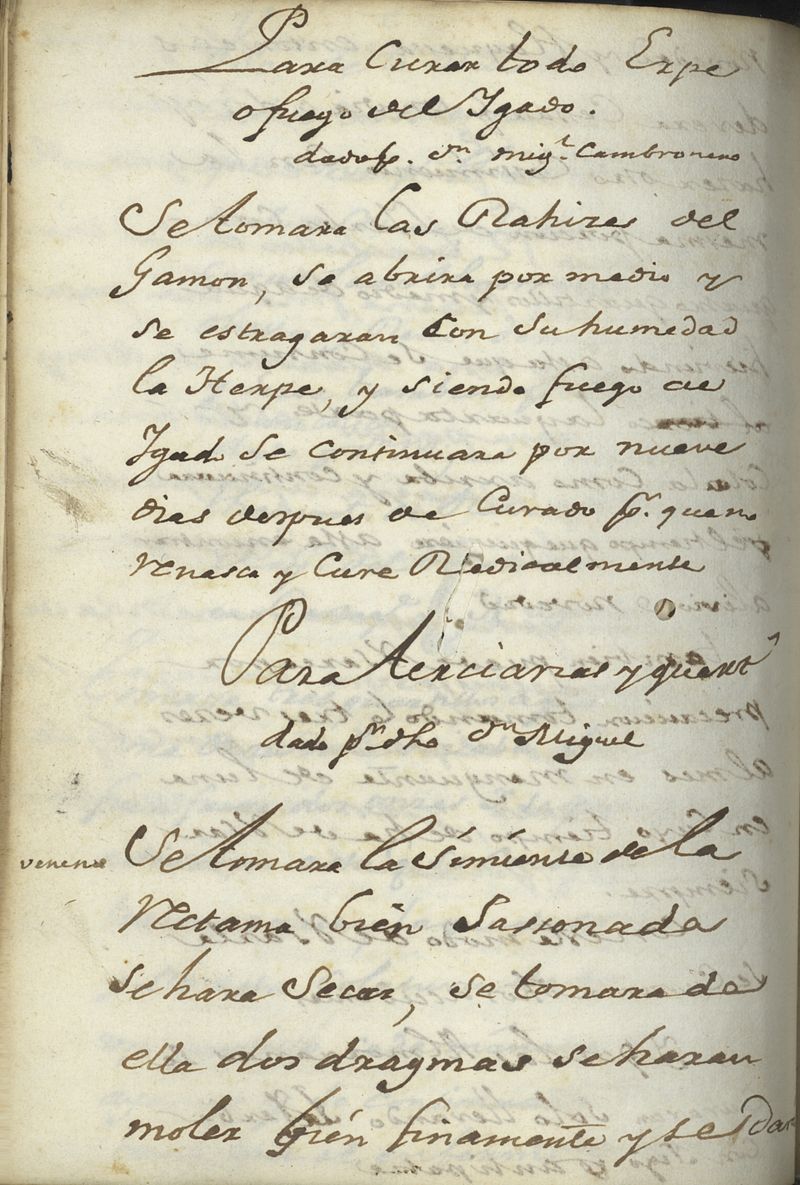 Para Curar todo Erpe
o fuego del Ygado.
dado p. dn. Migl. Cambronero
Se tomara las Rahizes del
Gamon, se abrira por medio y
se estragaran Con su humedad
la Herpe, y siendo fuego de
Ygad se continuara por nueve
dias despues de Curado pa. que no
renasca y Cure Radicalmente
Para terciarias y quart
dado pr. dho dn Miguel
venena Se tomara la simiente de la
Retama bien Sassonada
se hara Secar, se tomara de
ella dos dragmas se haran
moler bien finamente y se dar